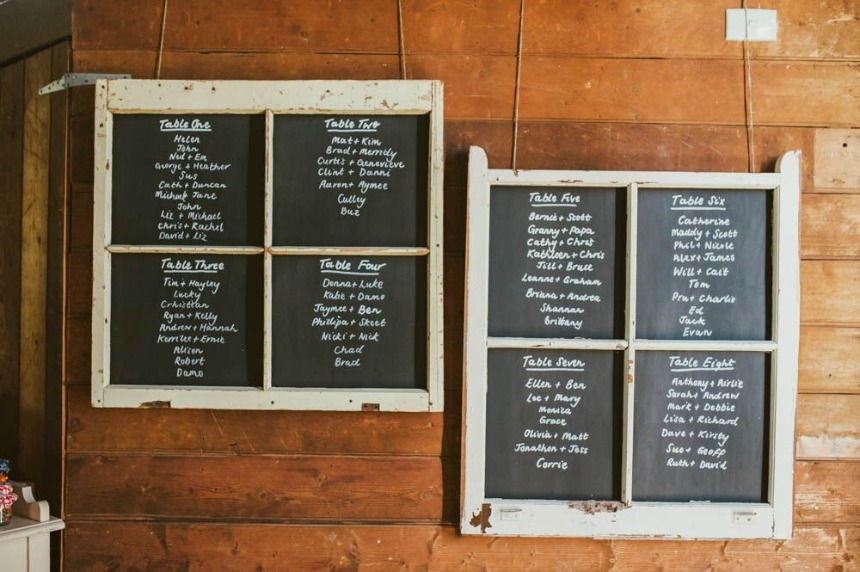 Table One
Helen
John
Ned + Em
George + Heather
Sus
Cath + Duncan
Michael Jane
John
Liz + Michael
Chris + Rachel
David + Liz
Table Two
Mat + Kim
Brad + Merridy
Curtis + Genevieve
Clint + Danni
Aaron + Aymee
Culley
Buz
Table Three
Tim + Hayley
Lucky
Crhistian
Ryan + Kelly
Andrew + Hannah
Kerrilee + Ernie
Alison
Robert
Damo
Table Four
Donna + Luke
Katie + Damo
Jaymee + Ben
Phillipa + Skeet
Nicki + Nick
Chad
Brad
Table Five
Bernie + Scott
Granny + Papa
Cathy + Chris
Kathleen + Chris
Jill + Bruce
Leanne + Graham
Briana + Andrea
Shannan
Brittany
Table Six
Catherine
Maddy + Scott
Phil + Nicole
Alex + James
Will + Cait
Tom
Pru + Charlie
Ed
Jack
Evan
Table Seven
Ellen + Ben
Lee + Mary
Monica
Grace
Olivia + Matt
Jonathan + Jess
Corrie
Table Eight
Anthony + Airlie
Sarah + Andrew
Mark + Debbie
Lisa + Richard
Dave + Kirsty
Sue + Geoff
Ruth + David